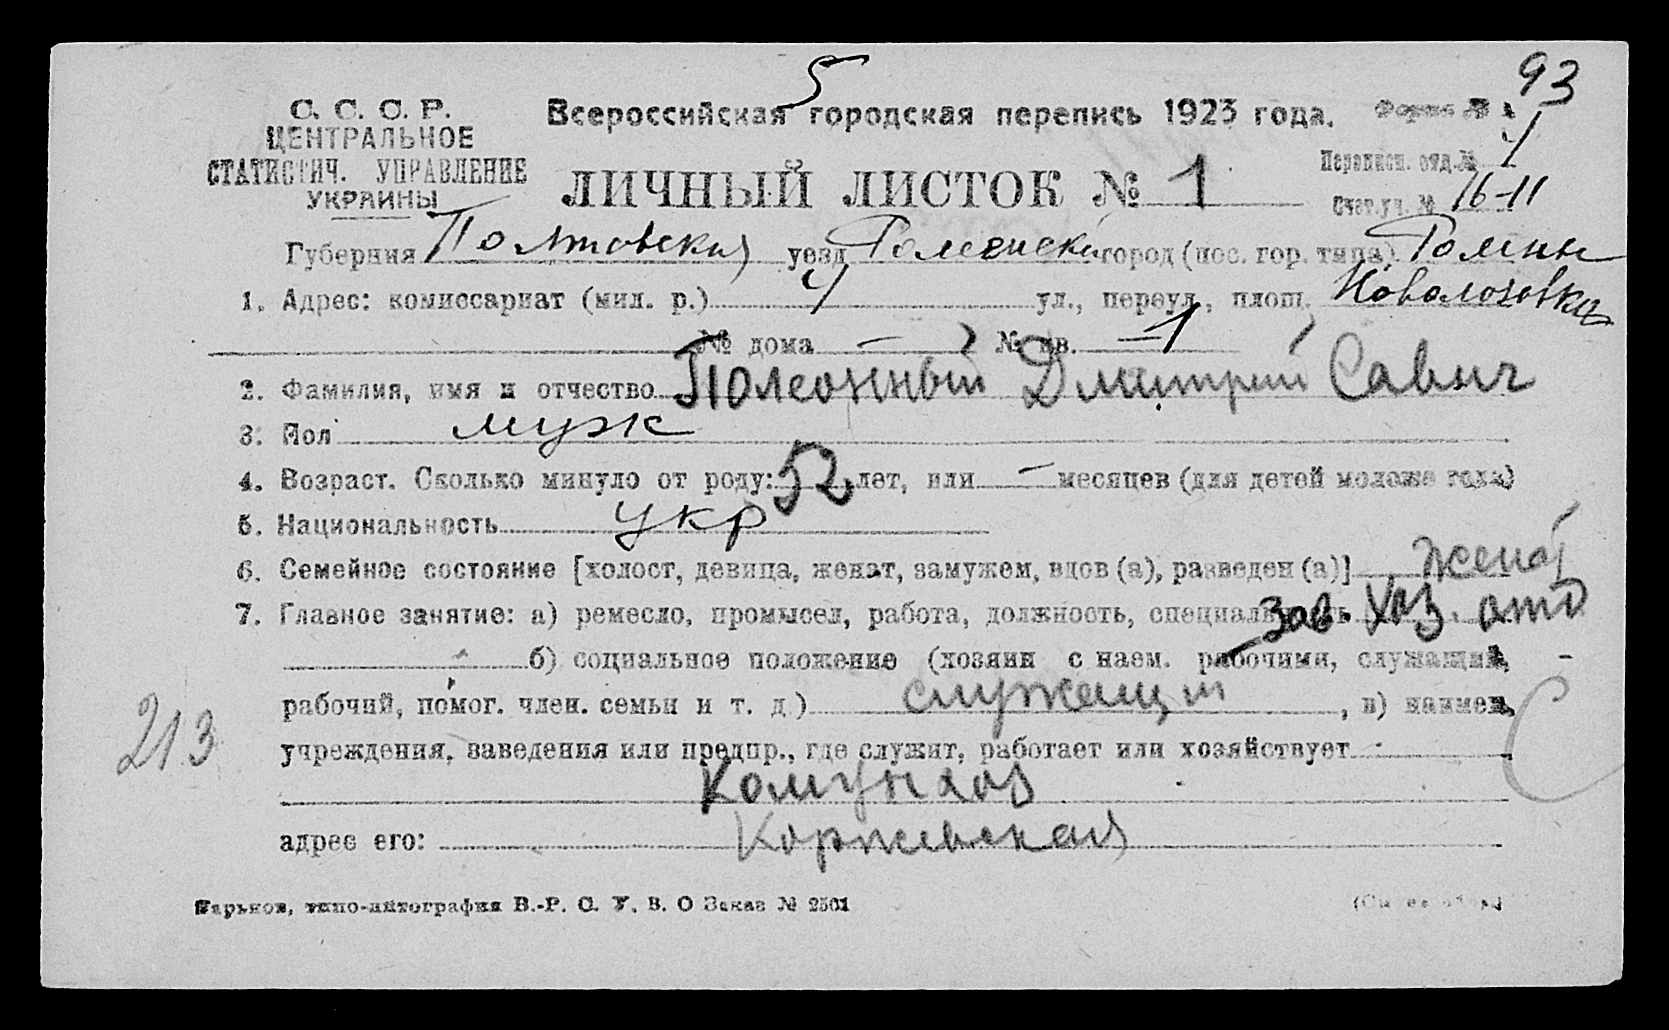 5
93
С. С. С. Р.
ЦЕНТРАЛЬНОЕ
СТАТИСТИЧ. УПРАВЛЕНИЕ
УКРАИНЫ
Всероссийская городская перепись 1923 года.
Форма №
Переписн. отд. № 4
ЛИЧНЫЙ ЛИСТОК № 1
Счет. уч. № 16-11
Губерния Полтовская уезд Роменски город (пос. гор. типа) Ромны
1. Адрес: комиссариат (мил. р.) 4 ул., переул., площ.
№ дома — № кв. — 1
2. Фамилия, имя и отчество Дмитрий Савич
3. Пол муж
4. Возраст. Сколько минуло от роду: 52 лет, или — месяцев (для детей моложе года)
5. Национальность укр
6. Семейное состояние [холост, девица, женат, замужем, вдов (а), разведен (а)] женат
7. Главное занятие: а) ремесло, промысел, работа, должность, специальность Зав. Хоз. отд
б) социальное положение (хозяин с наем. рабочими, служащий,
рабочий, помог. член. семьи и т. д.) служащий, в) наимен.
213
С
учреждения, заведения или предпр., где служит, работает или хозяйствует
Комунхоз
адрес его: Коржевская
Харьков, типо-литография В.-Р. С. У. В. О Заказ № 2501